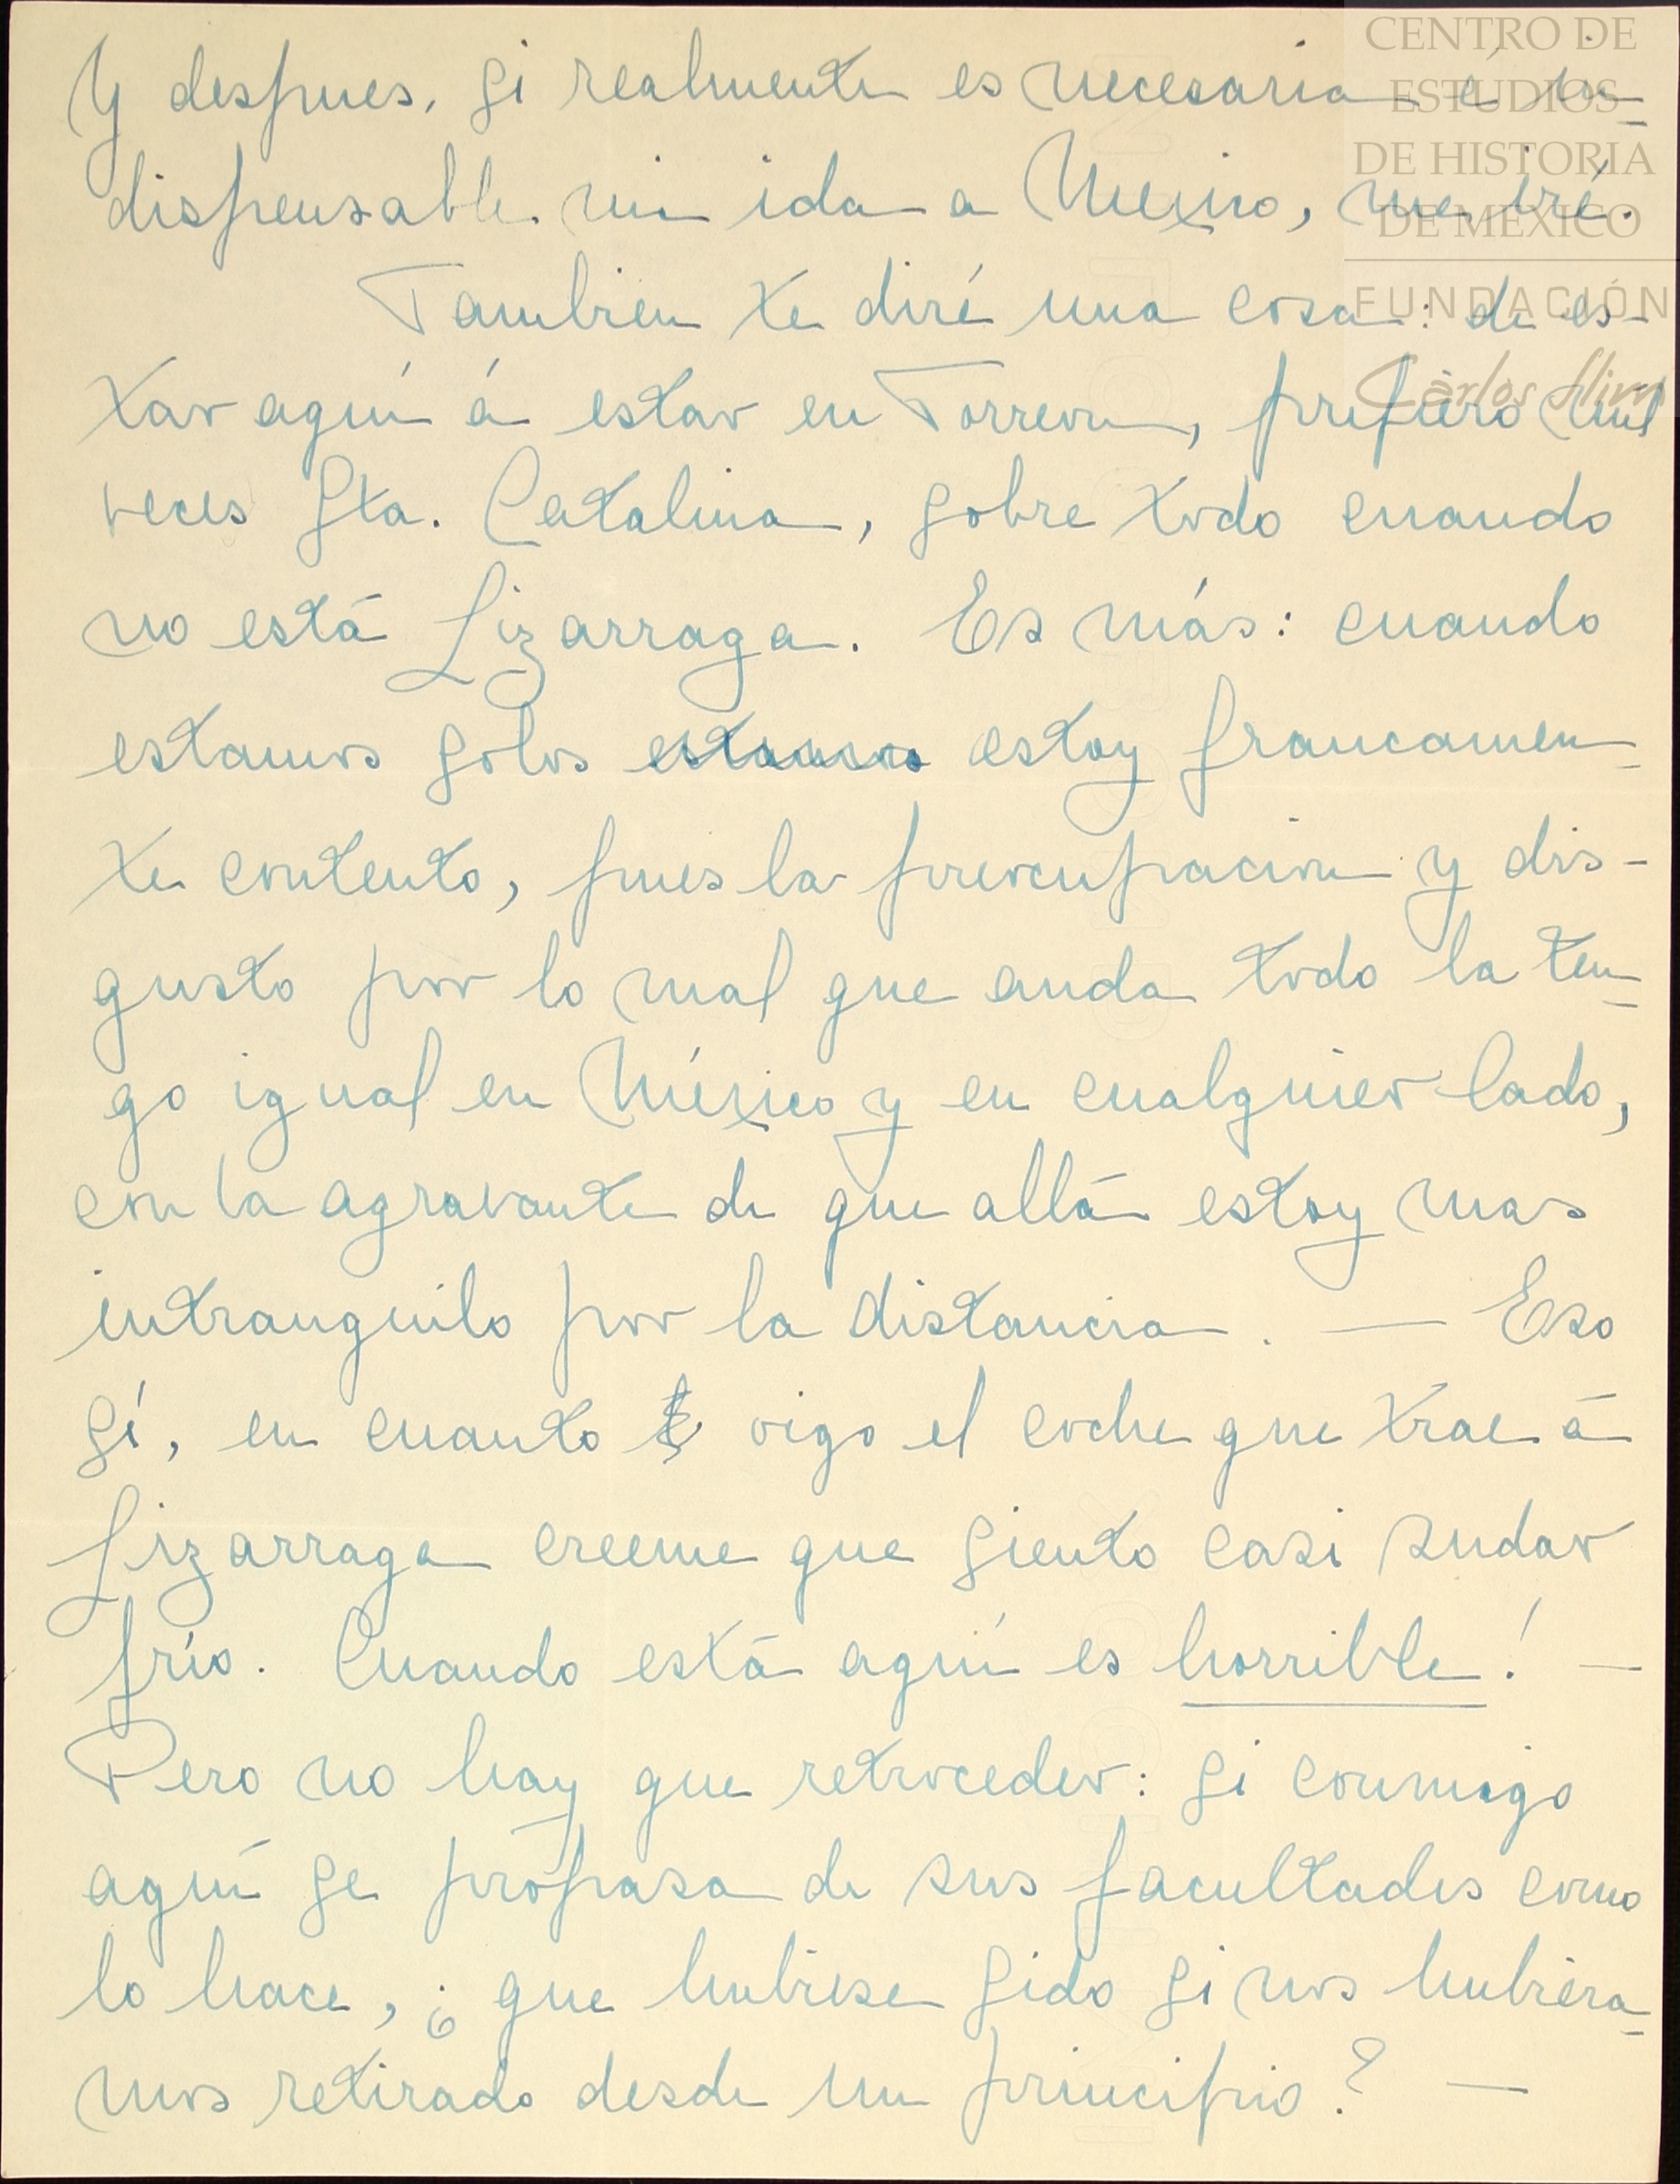 Y despues, si realmente es necesaria é in-
dispensable mi ida a Mexico, me iré.
Tambien te diré una cosa: de es-
tar aquí á estar en Torreon, prefiero mil
veces Sta. Catalina, sobre todo cuando
no está Lizarraga. Es más: cuando
estamos solos estamos estoy francamen-
te contento, pues la preocupacion y dis-
gusto por lo mal que anda todo la ten-
go igual en México y en cualquier lado,
con la agravante de que allá estoy mas
intranquilo por la distancia. — Eso
sí, en cuanto oigo el coche que trae á
Lizarraga creeme que siento casi sudar
frío. Cuando está aquí es horrible! —
Pero no hay que retroceder: si conmigo
aquí se propasa de sus facultades como
lo hace, ¿que hubiese sido si nos hubiera-
mos retirado desde un principio? —
CENTRO DE
ESTUDIOS
DE HISTORIA
DE MÉXICO
FUNDACIÓN
Carlos Slim